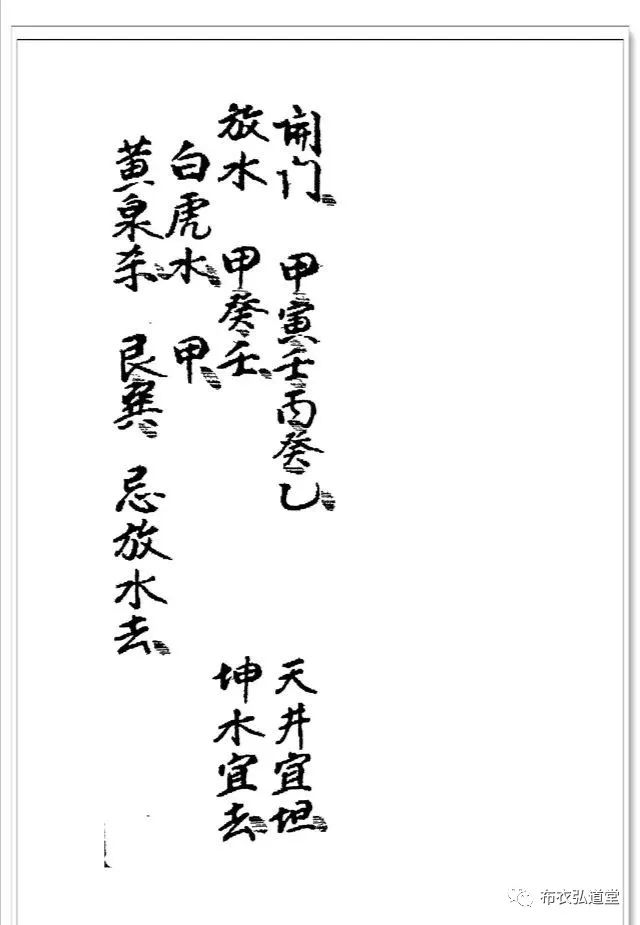 開门 甲寅壬丙癸乙 天井宜坦
放水 甲癸壬 坤水宜去
白虎水 甲
黄泉杀 艮巽 忌放水去
布衣弘道堂